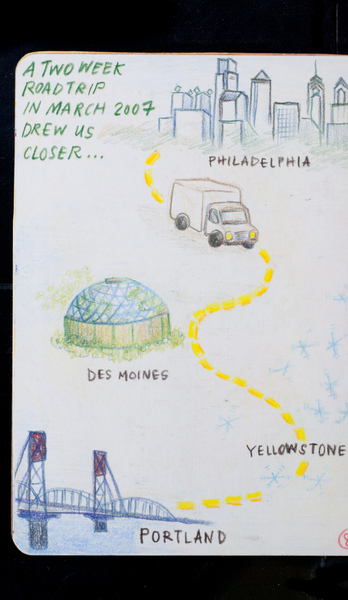 A TWO WEEK
ROADTRIP
IN MARCH 2007
DREW US
CLOSER...
PHILADELPHIA
DES MOINES
YELLOWSTONE
PORTLAND